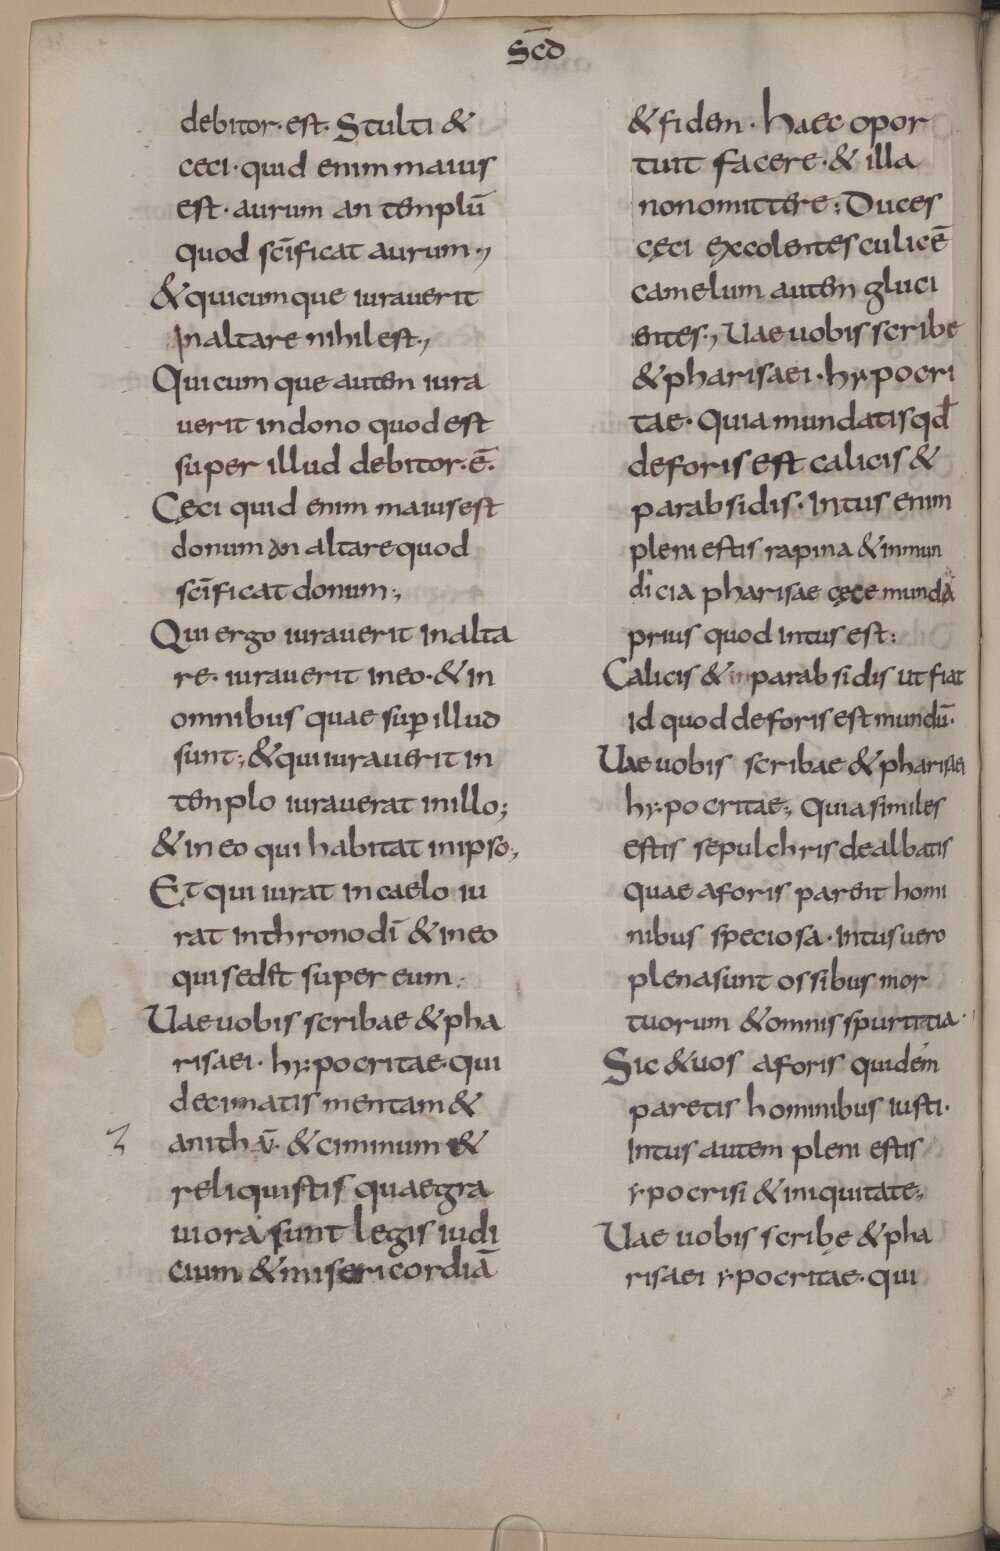 scd̄
debitor· est· Stulti &
ceci· quid enim maius
est· aurum an templū
quod sc̄ificat aurum·,
& quicumque iurauerit
in altare nihil est·,
Quicumque autem iura
uerit in dono quod est
super illud debitor· ē·
Cęci quid enim maius est
donum an altare quod
sc̄ificat donum·,
Qui ergo iurauerit in alta
re· iurauerit in eo· & in
omnibus quae suꝑ illud
sunt·, & qui iurauerit in
templo iurauerat in illo;
& in eo qui habitat in ipso·,
Et qui iurat in caelo iu
rat in throno dī & in eo
qui sedet super eum·
Uae uobis scribae & pha
risaei· hypocritae· qui
decimatis mentam &
anithū· & ciminum &
reliquistis quae gra
uiora sunt legis iudi
cium & misericordiā
& fidem· haec opor
tuit facere· & illa
non omittere; Duces
cęci excolentes culicē
camelum autem gluci
entes·, Uae uobis scribe
& pharisaei· hypocri
tae· Quia mundatis qđ
deforis est calicis &
parabsidis· Intus enim
pleni estis rapina & inmun
dicia pharisae cęce munda
prius quod intus est:
Calicis & in parabsidis ut fiat
id quod deforis est mundū·
Uae uobis scribae & pharisaei
hypocritae·, Quia similes
estis sepulchris dealbatis
quae aforis parent homi
nibus speciosa· Intus uero
plena sunt ossibus mor
tuorum & omni spurtitia·
Sic & uos aforis quidem
paretis hominibus iusti·
Intus autem pleni estis
ypocrisi & iniquitate·,
Uae uobis scribę & pha
risaei ypocritae· qui